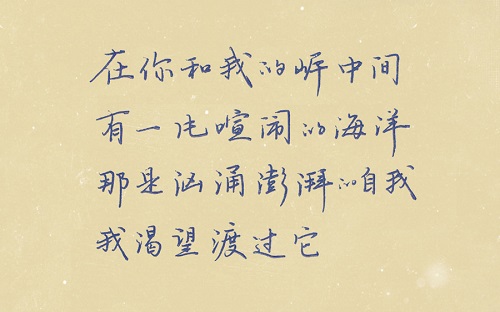 在你和我的岸中间
有一片喧闹的海洋
那是汹涌澎湃的自我
我渴望渡过它